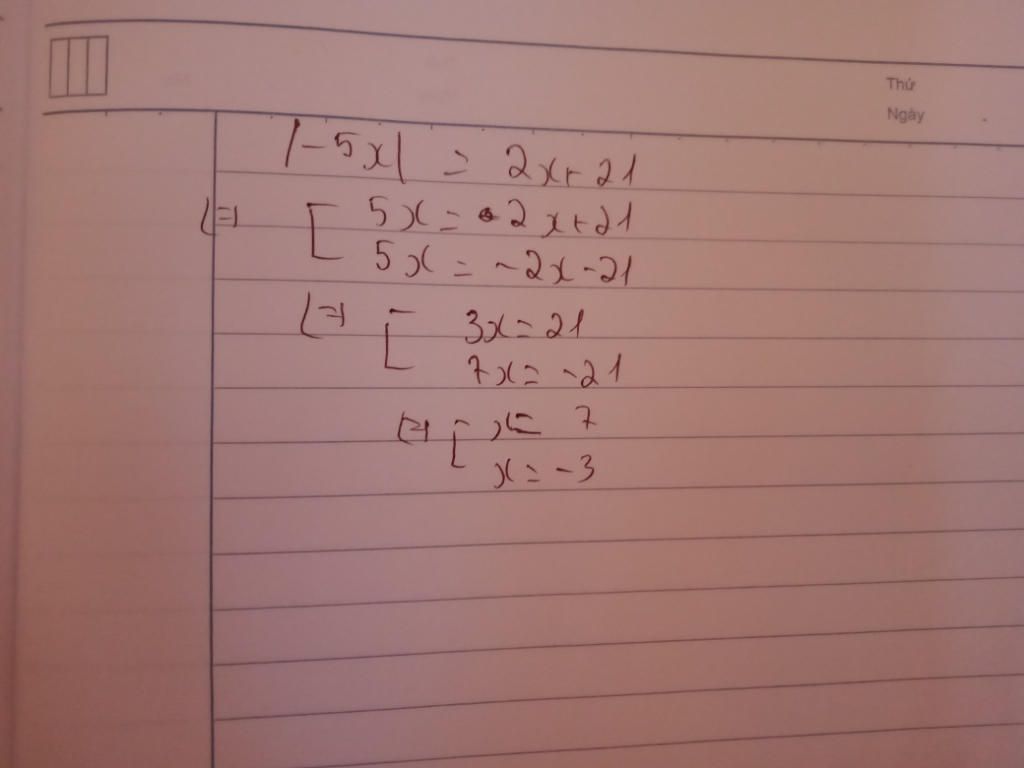 Thứ
Ngày
|-5x| = 2x+21
⇔ [ 5x = 2x+21
5x = -2x-21
⇔ [ 3x = 21
7x = -21
⇔ [ x = 7
x = -3